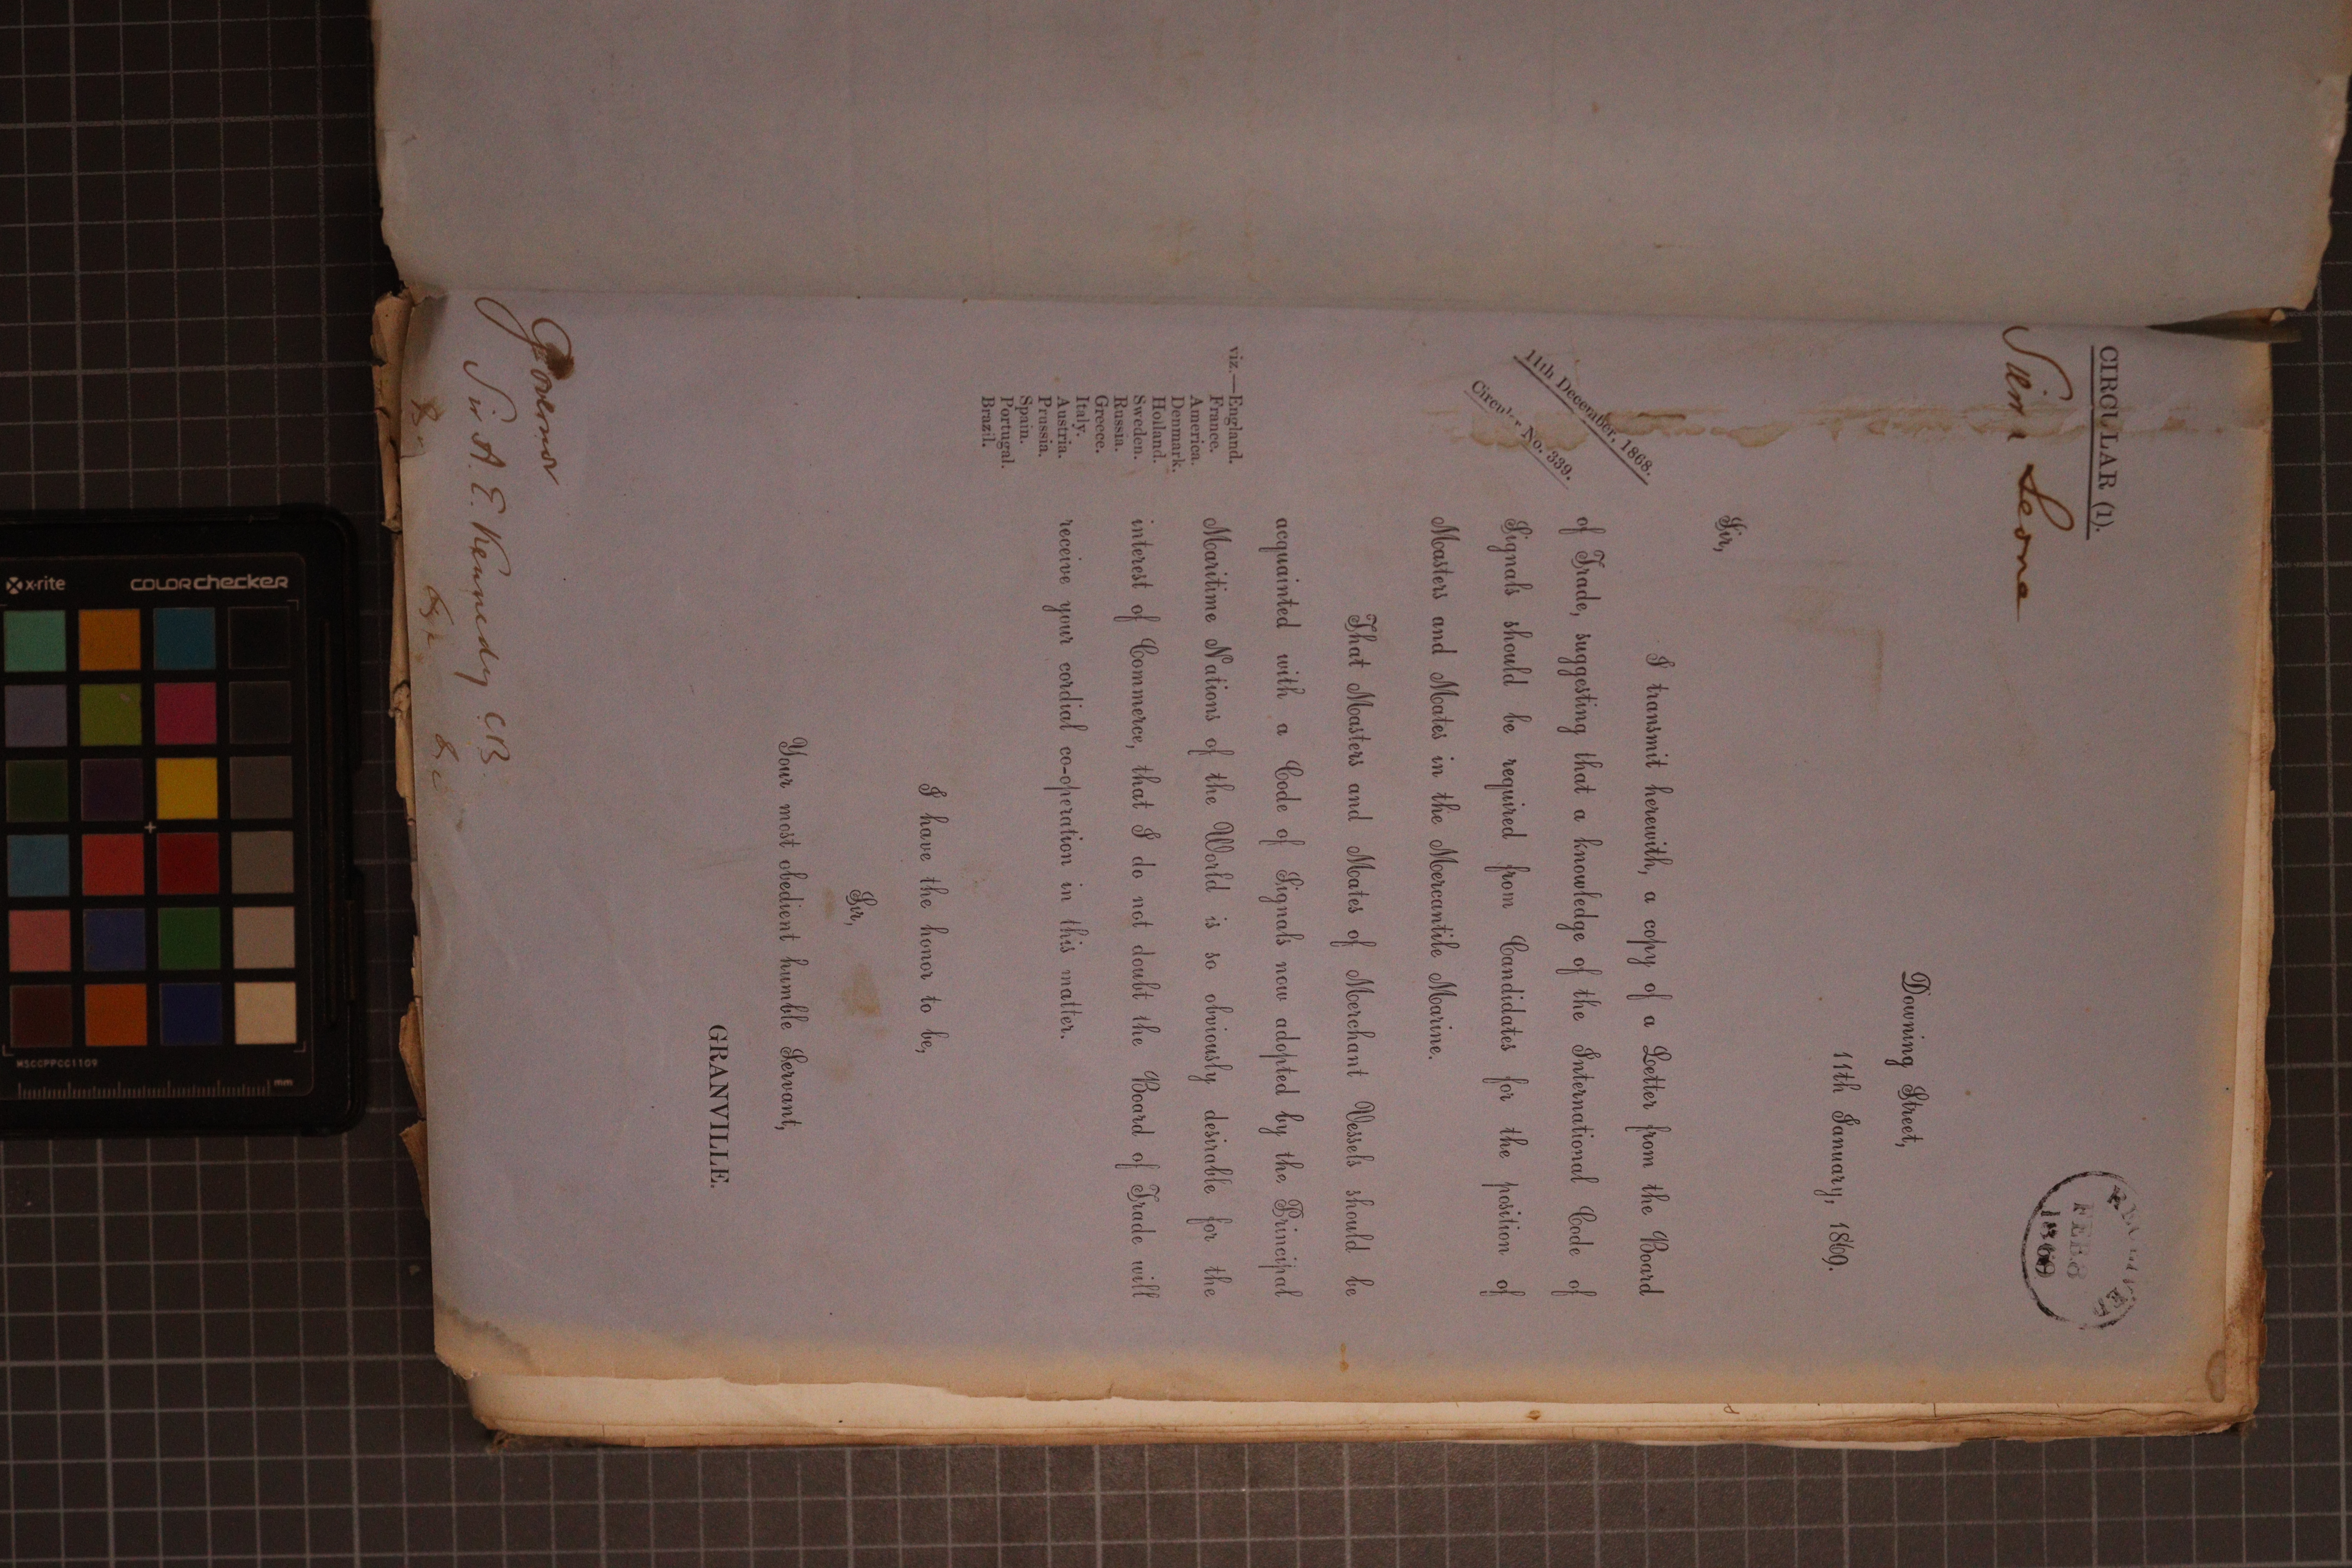 CIRCULAR (1).
Sierra Leone
RECEIVED
FEB 8
1869
Downing Street,
11th January, 1869.
Sir,
I transmit herewith, a copy of a Letter from the Board
11th December, 1868.
of Trade, suggesting that a knowledge of the International Code of
Circular No. 339.
Signals should be required from Candidates for the position of
Masters and Mates in the Mercantile Marine.
That Masters and Mates of Merchant Vessels should be
acquainted with a Code of Signals now adopted by the Principal
viz.—England.
France.
America.
Denmark.
Holland.
Sweden.
Russia.
Greece.
Italy.
Austria.
Prussia.
Spain.
Portugal.
Brazil.
Maritime Nations of the World is so obviously desirable for the
interest of Commerce, that I do not doubt the Board of Trade will
receive your cordial co-operation in this matter.
I have the honor to be,
Sir,
Your most obedient humble Servant,
GRANVILLE.
Governor
Sir A. E. Kennedy C.B.
&c &c &c
x-rite
colorchecker
MSCCPPCC1109
mm